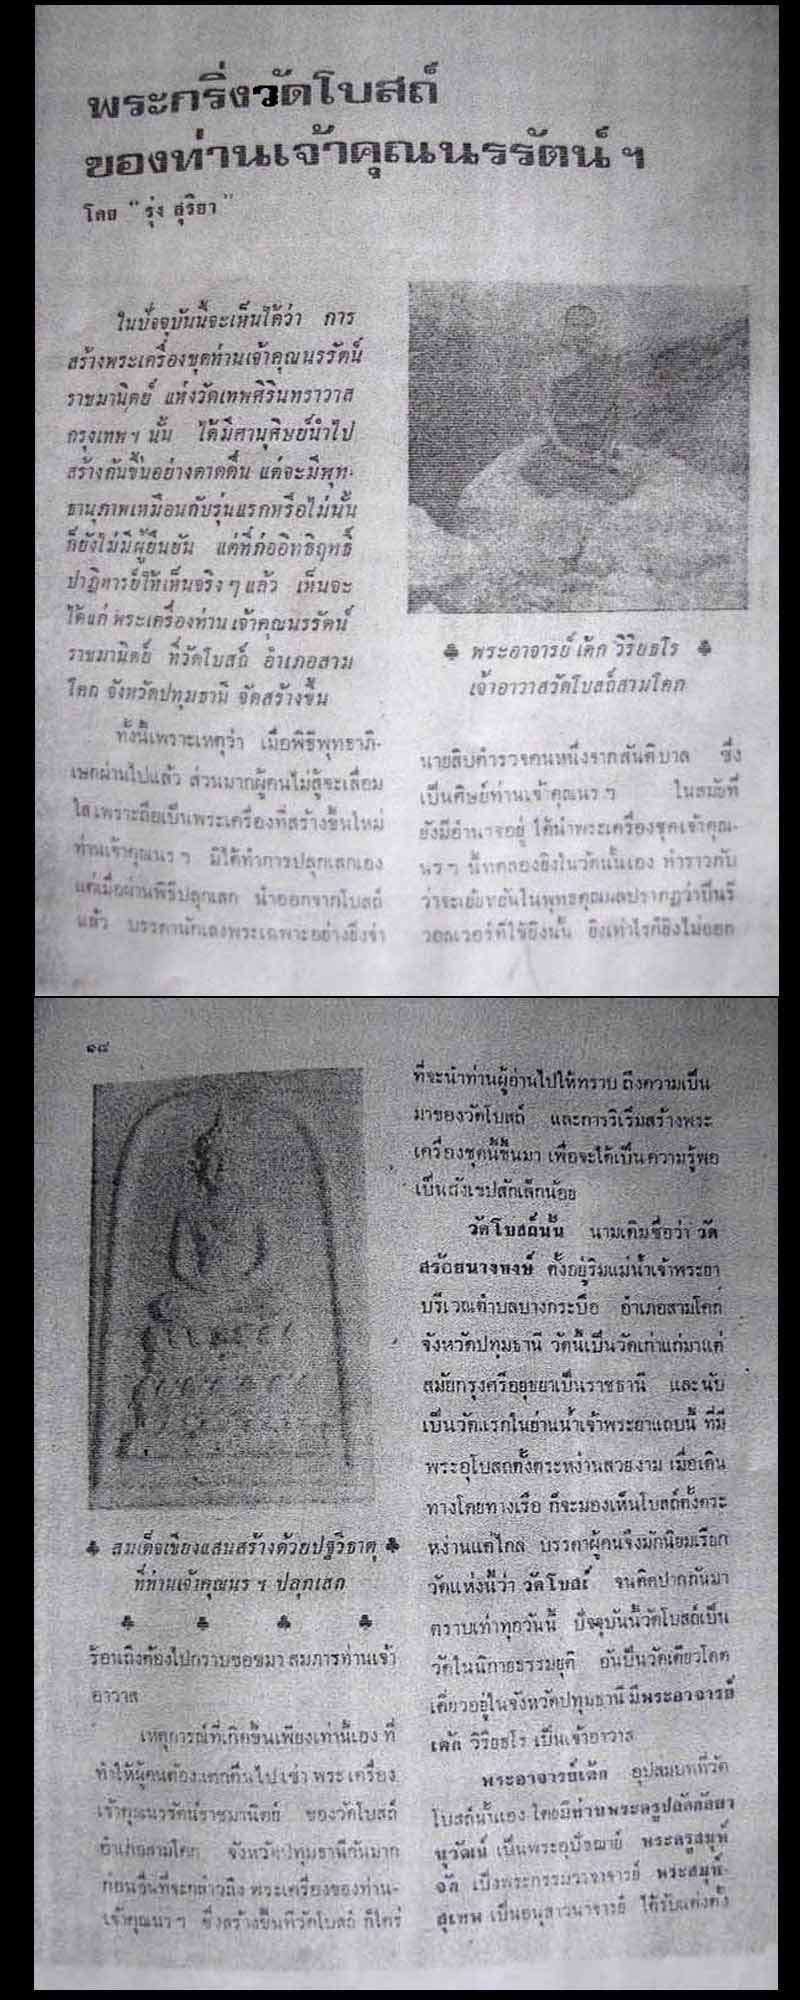 พระกริ่งวัดโบสถ์
ของท่านเจ้าคุณนรรัตน์ ฯ
โดย “ รุ่ง สุริยา ”
ในปัจจุบันนี้จะเห็นได้ว่า การ
สร้างพระเครื่องชุดท่านเจ้าคุณนรรัตน์
ราชมานิตย์ แห่งวัดเทพศิรินทราวาส
กรุงเทพ ฯ นั้น ได้มีศานุศิษย์นำไป
สร้างกันขึ้นอย่างดาดดื่น แต่จะมีพุท-
ธานุภาพเหมือนกับรุ่นแรกหรือไม่นั้น
ก็ยังไม่มีผู้ยืนยัน แต่ที่ก่ออิทธิฤทธิ์
ปาฏิหารย์ให้เห็นจริง ๆ แล้ว เห็นจะ
ได้แก่ พระเครื่องท่าน เจ้าคุณนรรัตน์
ราชมานิตย์ ที่วัดโบสถ์ อำเภอสาม
โคก จังหวัดปทุมธานี จัดสร้างขึ้น
ทั้งนี้เพราะเหตุว่า เมื่อพิธีพุทธาภิ-
เษกผ่านไปแล้ว ส่วนมากผู้คนไม่สู้จะเลื่อม
ใส เพราะถือเป็นพระเครื่องที่สร้างขึ้นใหม่
ท่านเจ้าคุณนร ฯ มิได้ทำการปลุกเสกเอง
แต่เมื่อผ่านพิธีปลุกเสก นำออกจากโบสถ์
แล้ว บรรดานักเลงพระเฉพาะอย่างยิ่งจ่า
♣ พระอาจารย์ เด็ก วิริยธโร ♣
เจ้าอาวาสวัดโบสถ์สามโคก
นายสิบตำรวจคนหนึ่งจากสันติบาล ซึ่ง
เป็นศิษย์ท่านเจ้าคุณนร ฯ ในสมัยที่
ยังมีอำนาจอยู่ ได้นำพระเครื่องชุดเจ้าคุณ-
นร ฯ นี้ทดลองยิงในวัดนั้นเอง ทำราวกับ
ว่าจะเย้ยหยันในพุทธคุณผลปรากฏว่าปืนรี
วอลเวอร์ที่ใช้ยิงนั้น ยิงเท่าไรก็ยิงไม่ออก
๑๘
♣ สมเด็จเชียงแสนสร้างด้วยปฐวีธาตุ ♣
ที่ท่านเจ้าคุณนร ฯ ปลุกเสก
♣ ♣ ♣ ♣
ร้อนถึงต้องไปกราบขอขมา สมภารท่านเจ้า
อาวาส
เหตุการณ์ที่เกิดขึ้นเพียงเท่านี้เอง ที่
ทำให้ผู้คนต้องแตกตื่นไปเช่า พระเครื่อง
เจ้าคุณนรรัตน์ราชมานิตย์ ของวัดโบสถ์
อำเภอสามโคก จังหวัดปทุมธานีกันมาก
ก่อนอื่นที่จะกล่าวถึง พระเครื่องของท่าน-
เจ้าคุณนร ฯ ซึ่งสร้างขึ้นที่วัดโบสถ์ ก็ใคร่
ที่จะนำท่านผู้อ่านไปให้ทราบ ถึงความเป็น
มาของวัดโบสถ์ และการริเริ่มสร้างพระ
เครื่องชุดนี้ขึ้นมา เพื่อจะได้เป็นความรู้พอ
เป็นสังเขปสักเล็กน้อย
วัดโบสถ์นั้น นามเดิมชื่อว่า วัด
สร้อยนางหงษ์ ตั้งอยู่ริมแม่น้ำเจ้าพระยา
บริเวณตำบลบางกระบือ อำเภอสามโคก
จังหวัดปทุมธานี วัดนี้เป็นวัดเก่าแก่มาแต่
สมัยกรุงศรีอยุธยาเป็นราชธานี และนับ
เป็นวัดแรกในย่านน้ำเจ้าพระยาแถบนี้ ที่มี
พระอุโบสถตั้งตระหง่านสวยงาม เมื่อเดิน
ทางโดยทางเรือ ก็จะมองเห็นโบสถ์ตั้งตระ
หง่านแต่ไกล บรรดาผู้คนจึงมักนิยมเรียก
วัดแห่งนี้ว่า วัดโบสถ์ จนติดปากกันมา
ตราบเท่าทุกวันนี้ ปัจจุบันนี้วัดโบสถ์เป็น
วัดในนิกายธรรมยุติ อันเป็นวัดเดียวโดด
เดี่ยวอยู่ในจังหวัดปทุมธานี มีพระอาจารย์
เด็ก วิริยธโร เป็นเจ้าอาวาส
พระอาจารย์เด็ก อุปสมบทที่วัด
โบสถ์นั้นเอง โดยมีท่านพระครูปลัดกัลยา
นุวัฒน์ เป็นพระอุปัชฌาย์ พระครูสมุห์
เป็นพระกรรมวาจาจารย์ พระสมุห์-
สุเทพ เป็นอนุสาวนาจารย์ ได้รับแต่งตั้ง